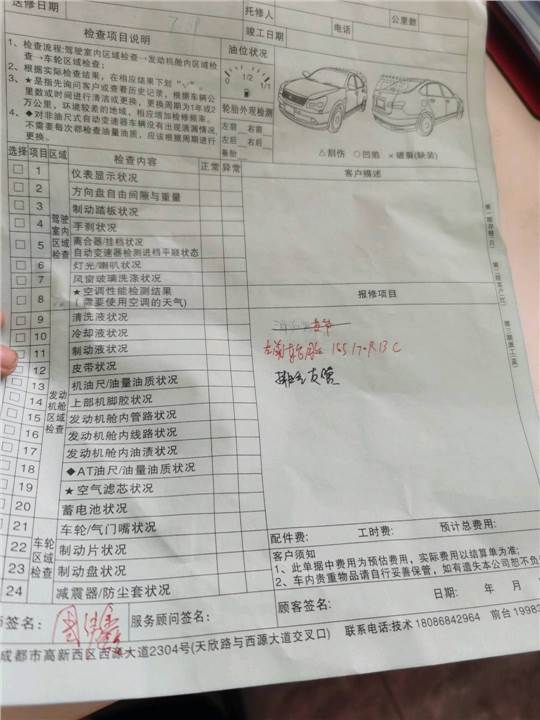 送修日期
托修人
公里数
竣工日期
电话
检查项目说明
1、检查流程:驾驶室内区域检查→发动机舱内区域检查→车轮区域检查;
2、根据实际检查结果,在相应结果下划"
3、★是指先询问客户或查看历史记录,根据车辆公里数或时间进行清洁或更换,更换周期为1年或2万公里,环境较差的地域,相应增加检修频率。
4、◆对非油尺式自动变速器车辆没有出现渗漏情况,不需要每次都检查油量油质,应该根据周期进行更换。
油位状况
0 1/2 1/1
轮胎外观检测
左前 右前
左后 右后
备胎
△刮伤 ○凹陷 ×破裂(缺装)
选择 项目 区域 检查内容 正常 异常
客户描述
驾驶室内区域检查
1 仪表显示状况
2 方向盘自由间隙与重量
3 制动踏板状况
4 手刹状况
5 离合器/挂档状况
自动变速器检测进档平顺状态
6 灯光/喇叭状况
7 风窗玻璃洗涤状况
8 ★空调性能检测结果
(需要使用空调的天气)
报修项目
发动机舱区域检查
9 清洗液状况
10 冷却液状况
11 制动液状况
12 皮带状况
13 机油尺/油量油质状况
14 上部机脚胶状况
15 发动机舱内管路状况
16 发动机舱内线路状况
17 发动机舱内油渍状况
18 ◆AT油尺/油量油质状况
19 ★空气滤芯状况
20 蓄电池状况
车轮区域检查
21 车轮/气门嘴状况
22 制动片状况
23 制动盘状况
24 减震器/防尘套状况
165/70R13C
配件费: 工时费: 预计总费用:
客户须知
1、此单据中费用为预估费用,实际费用以结算单为准;
2、车内贵重物品请自行妥善保管,如有遗失本公司恕不负
日期: 年 月
师签名:
服务顾问签名:
顾客签名:
成都市高新西区西源大道2304号(天欣路与西源大道交叉口)
联系电话:技术 18086842964 前台 19982